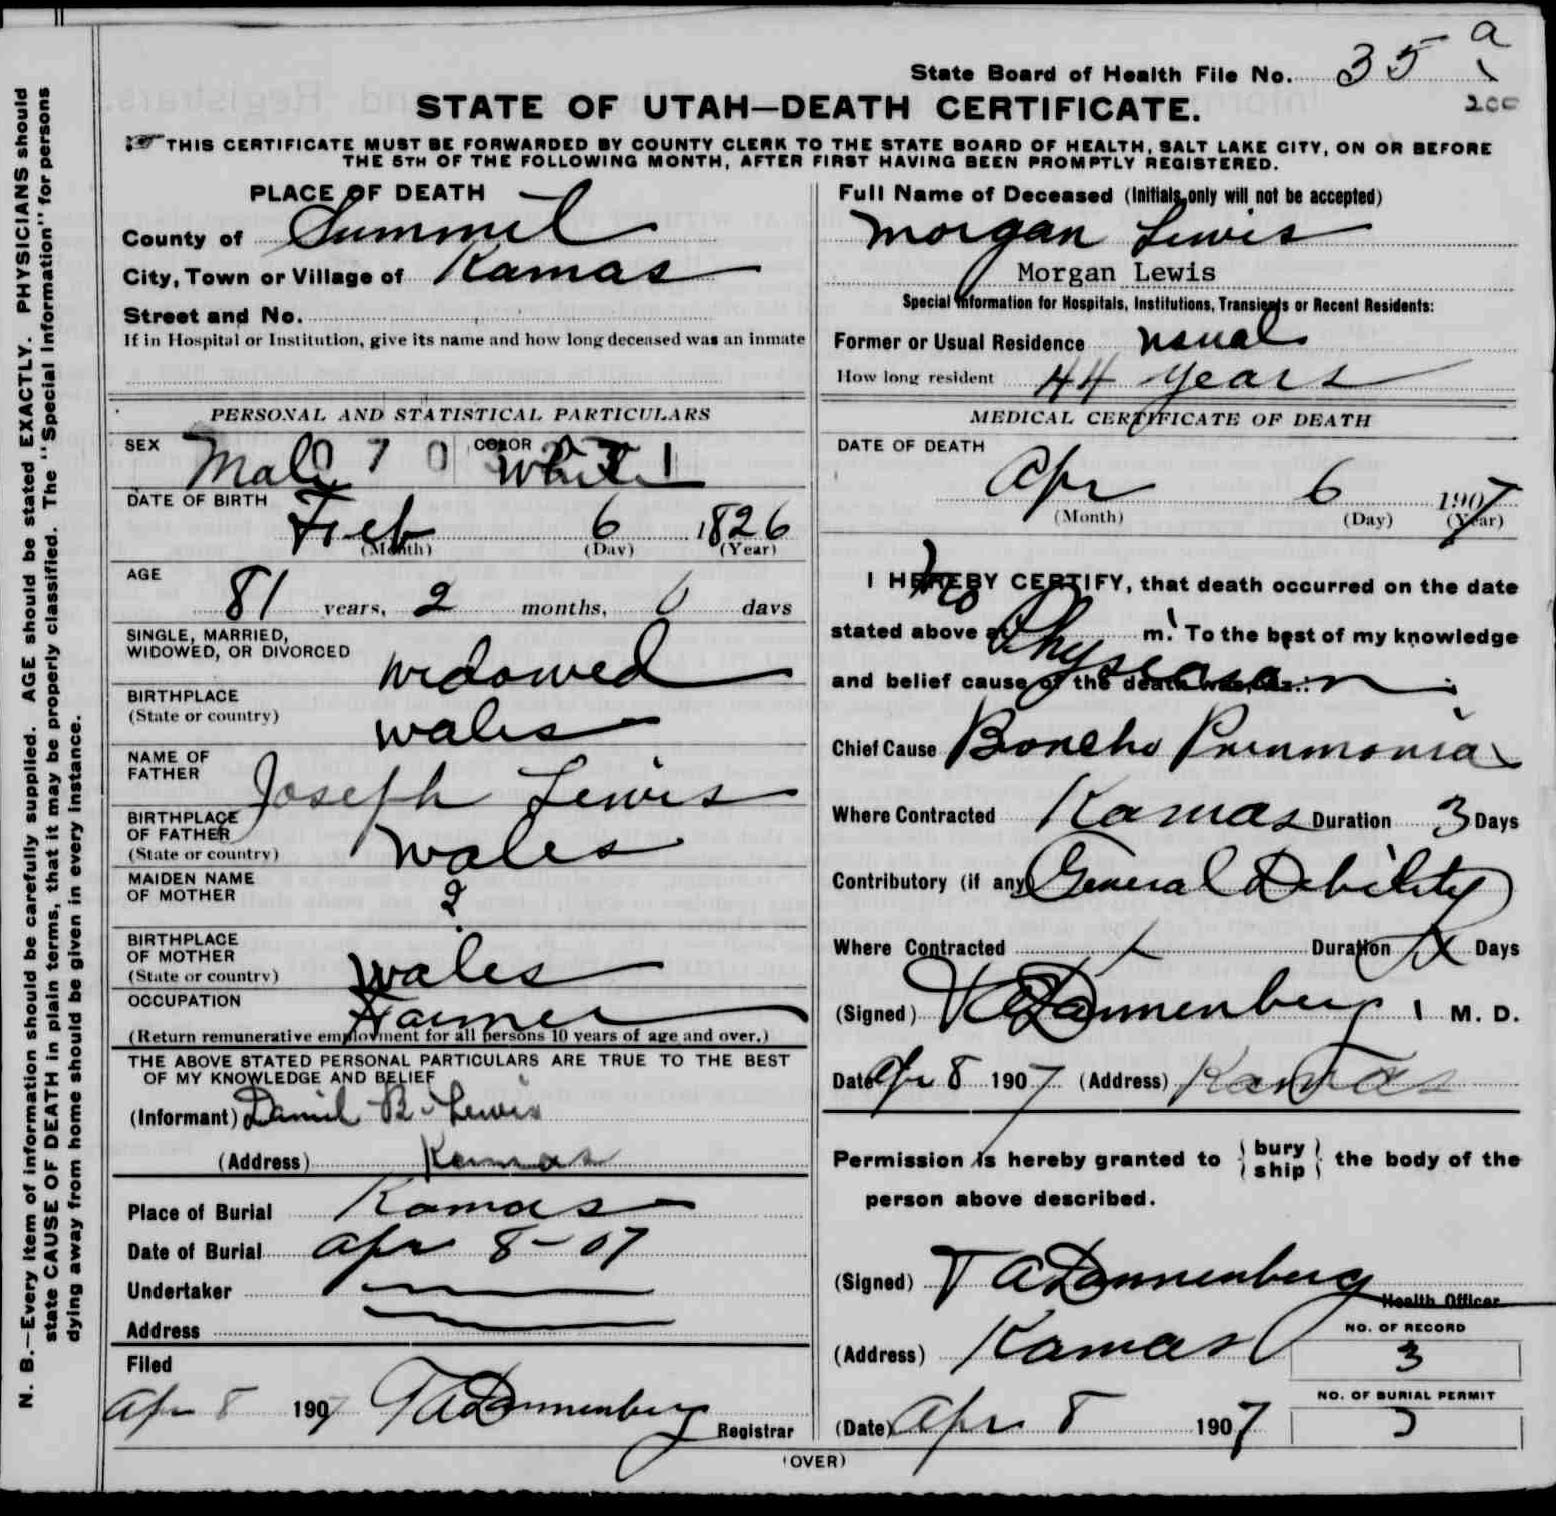 State Board of Health File No. 35 a
200
STATE OF UTAH—DEATH CERTIFICATE.
THIS CERTIFICATE MUST BE FORWARDED BY COUNTY CLERK TO THE STATE BOARD OF HEALTH, SALT LAKE CITY, ON OR BEFORE
THE 5TH OF THE FOLLOWING MONTH, AFTER FIRST HAVING BEEN PROMPTLY REGISTERED.
N. B.—Every item of information should be carefully supplied. AGE should be stated EXACTLY. PHYSICIANS should
state CAUSE OF DEATH in plain terms, that it may be properly classified. The "Special Information" for persons
dying away from home should be given in every instance.
PLACE OF DEATH
County of Summit
City, Town or Village of Kamas
Street and No.
If in Hospital or Institution, give its name and how long deceased was an inmate
PERSONAL AND STATISTICAL PARTICULARS
SEX Male COLOR White
DATE OF BIRTH
Feb 6 1826
(Month) (Day) (Year)
AGE
81 years, 2 months, 0 days
SINGLE, MARRIED,
WIDOWED, OR DIVORCED widowed
BIRTHPLACE
(State or country) wales
NAME OF
FATHER Joseph Lewis
BIRTHPLACE
OF FATHER
(State or country) wales
MAIDEN NAME
OF MOTHER ?
BIRTHPLACE
OF MOTHER
(State or country) wales
OCCUPATION Farmer
(Return remunerative employment for all persons 10 years of age and over.)
THE ABOVE STATED PERSONAL PARTICULARS ARE TRUE TO THE BEST
OF MY KNOWLEDGE AND BELIEF
(Informant) Daniel B. Lewis
(Address) Kamas
Place of Burial Kamas
Date of Burial Apr 8-07
Undertaker
Address
Filed
Apr 8 1907 T A Dannenberg
Registrar
Full Name of Deceased (Initials only will not be accepted)
Morgan Lewis
Morgan Lewis
Special Information for Hospitals, Institutions, Transients or Recent Residents:
Former or Usual Residence usual
How long resident 44 years
MEDICAL CERTIFICATE OF DEATH
DATE OF DEATH
Apr 6 1907
(Month) (Day) (Year)
I HEREBY CERTIFY, that death occurred on the date
stated above at m. To the best of my knowledge
and belief cause of the death was, as:
No
Physician
Chief Cause Boncho Pnunmonia
Where Contracted Kamas Duration 3 Days
Contributory (if any) General Debility
Where Contracted X Duration X Days
(Signed) T A Dannenberg M. D.
Date Apr 8 1907 (Address) Kamas
Permission is hereby granted to bury ship the body of the
person above described.
(Signed) T A Dannenberg
Health Officer
(Address) Kamas
NO. OF RECORD
3
NO. OF BURIAL PERMIT
(Date) Apr 8 1907
(OVER)